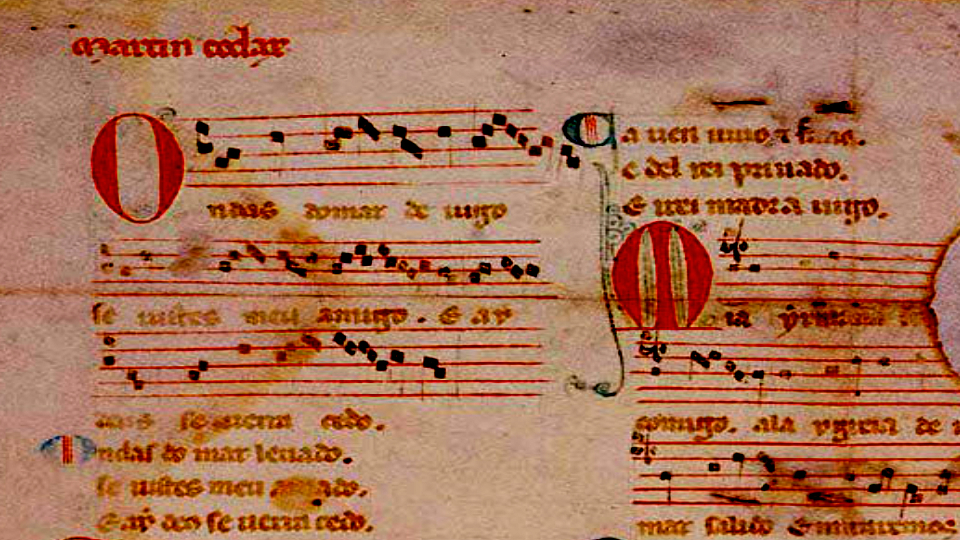 martin codax
Ondas domar de uigo
se uistes meu amigo. E ay
deus se uerra cedo.
Ondas do mar leuado.
se uistes meu amado.
E aẏ deo se uerra cedo.
Ca uen uiuo
e del rei priuado.
E irei madr a uigo.
Mia
comigo. ala ygreia de
mar salido E miraremos